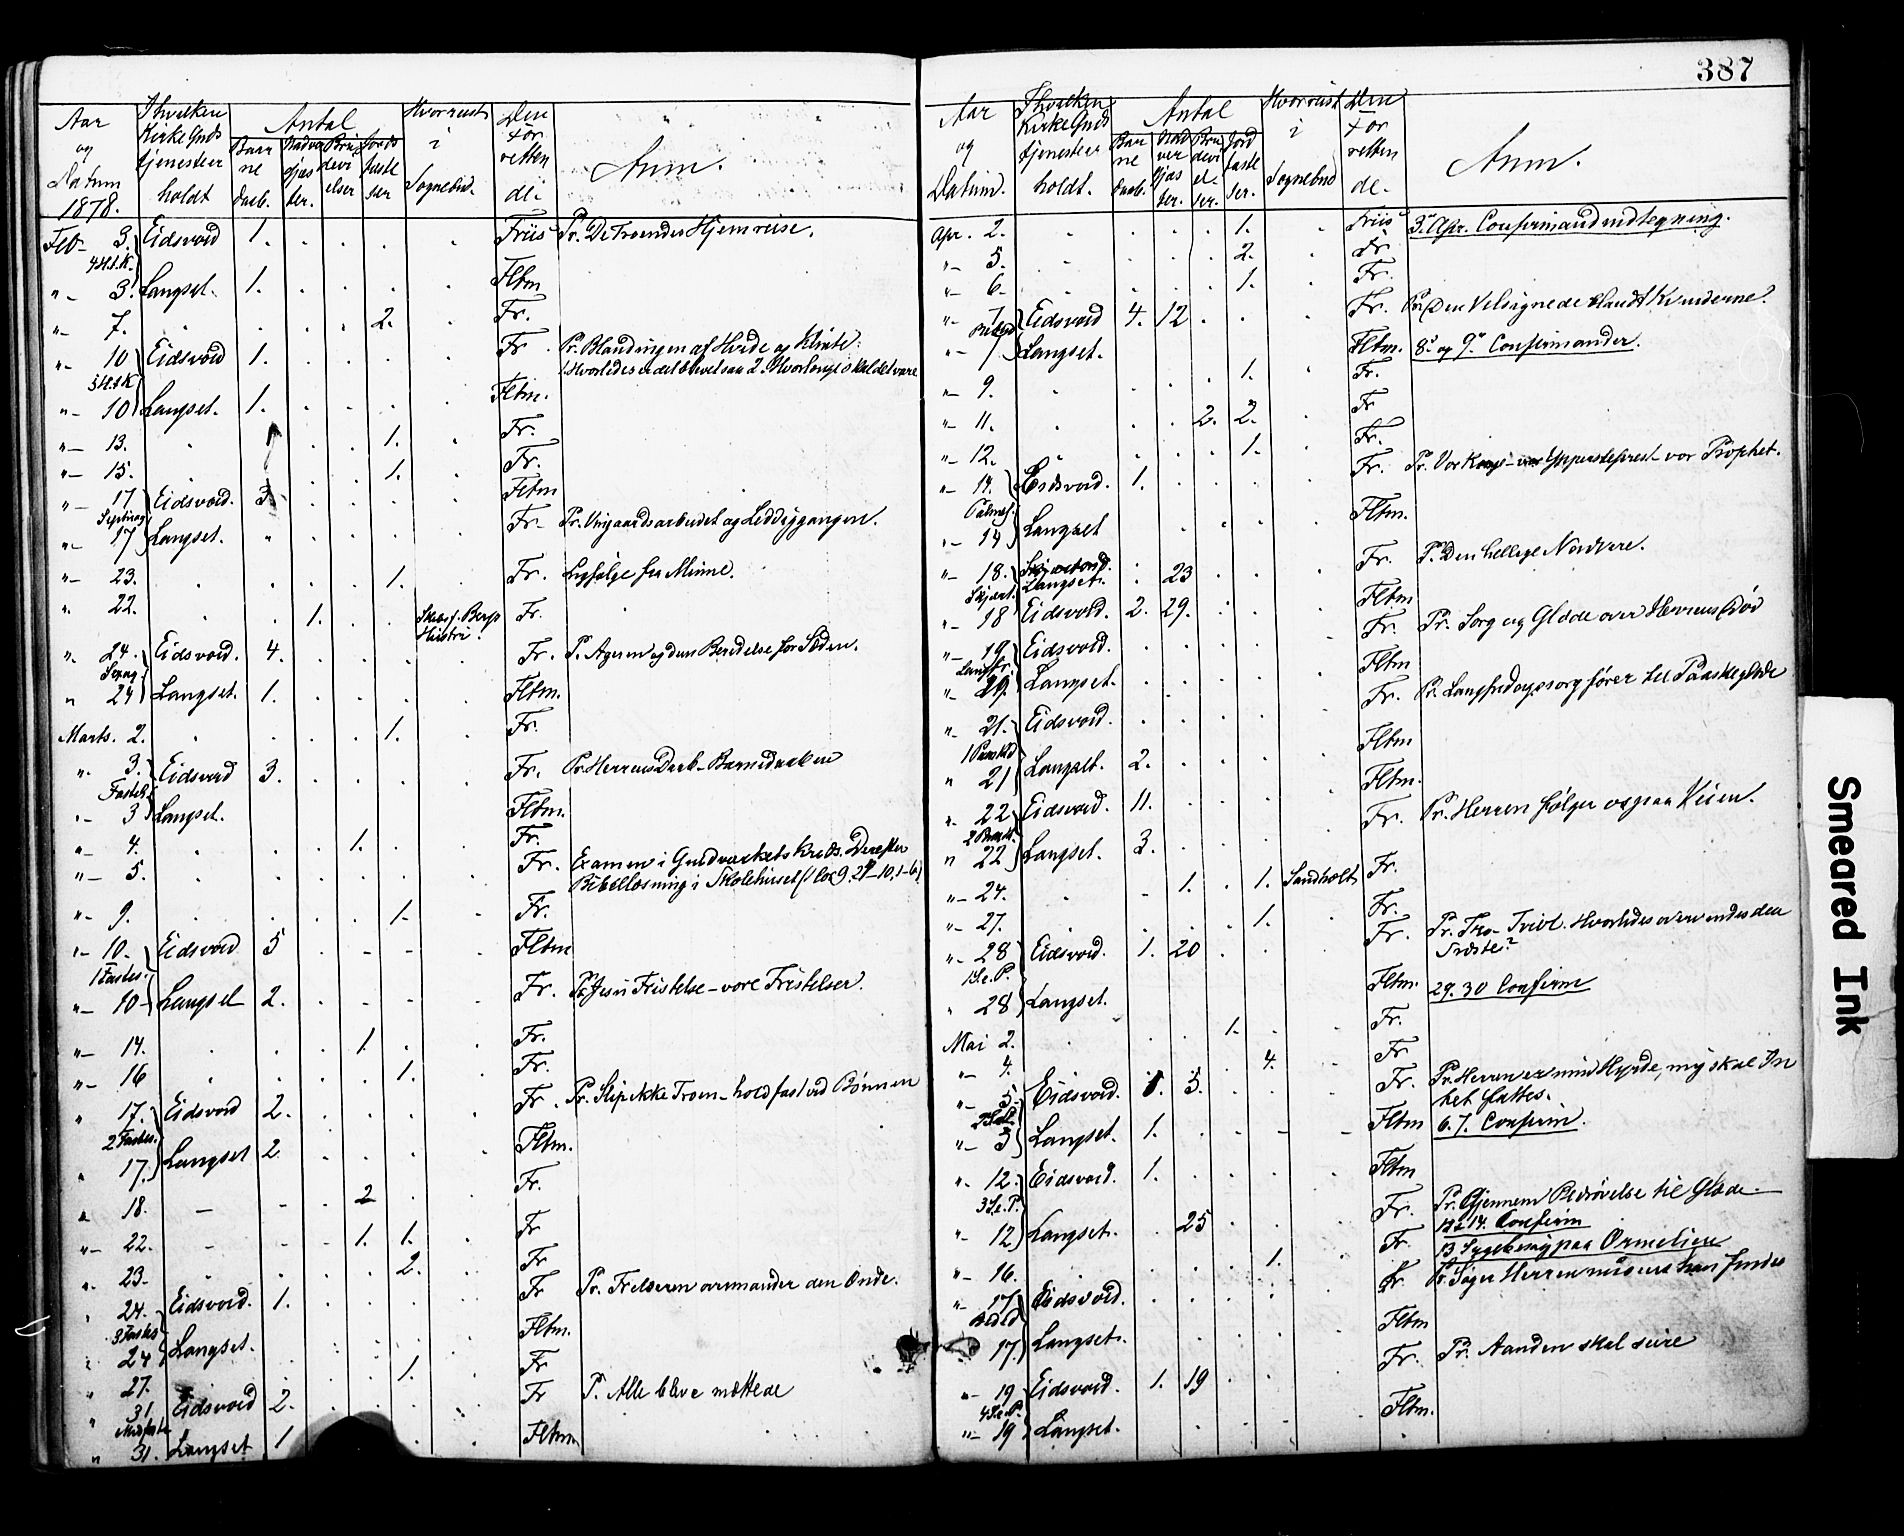 387
Aar og Datum 1878. Ihvilken Kirke Gudstjenester holdt Antal Barnedaab. Nadvergjæster. Brudevielser Jordfæstelser Hvorreist i Sognebud. Den Forrettende Anm.
Feb 3. Eidsvold 1. Friis Pr. De Troendes Hjemreise.
4 S.e.H.3.K.
"- 3. Langset. 1. Fltm
"- 7. 2. Fr.
"- 10 Eidsvold 1. Fr Pr. Blandingen af Hvede og Klinte:
1. Hvorledes er det blevet saa 2. Hvorlænge skal det vare
"- 10 Langset. 1. Fltm.
"- 13. 1. Fr.
"- 15. 1. Fr.
"- 17 Eidsvold. 3. Fltm
Septuag
"- 17 Langset. Fr. Pr. Viingaardsarbeidet og Leddiggangen.
"- 23. 1. Fr. Ligfølge fra Minne.
". 22. 1. Berg Hustru. Fr.
". 24. Eidsvold. 4. Fr. P. Ageren og dens Beredelse for Sæden.
Sexag.
" 24 Langset. 1. Fltm.
Marts. 2. 1. Fr.
". 3. Eidsvold 3. Fr. Pr. Herrens Daab - Barnedaaben
Fastel.
"- 3 Langset. Fltm.
"- 4. 1. Fr.
"- 5. Fr. Examen i Guldværkets Kreds. Derefter
Bibellæsning i Skolehuset (1 Cor 9.24-10,1-6)
"- 9. 1. Fr.
"- 10. Eidsvold 5 Fltm
1 Fastes.
"- 10 Langset 2. Fr. Pr. Jesu Fristelse - vore Fristelser.
"- 14. 1. Fr.
"- 16 1. Fr.
" 17. Eidsvold 2. Fr. Pr. Slip ikke Troen - hold fast ved Bønnen
2 Fastes.
" 17. Langset 2. Fltm.
" 18. 2 Fr.
"- 22. 1. 1. Fr
". 23. 2. Fr
" 24. Eidsvold. 1. Fr Pr. Frelseren overmander den Onde.
3 Fastes
" 24 Langset. Fltm.
" 27. 1. Fr
" 31. Eidsvold 2. Fr P. Alle bleve mættede
Midfaste
" 31. Langset 1 Fltm
Aar og Datum. Ihvilken Kirke Gudstjenester holdt. Antal Barnedaab. Nadvergjæster. Brudevielser. Jordfæstelser. Hvorreist i Sognebud Den Forrettende. Anm.
Apr. 2. 1. Friis 3. Apr. Confirmandindtegning.
"- 5. 2. Fr
"- 6. 1. Fr.
"- 7. Eidsvold 4. 12 Fr. Pr. Den Velsignede blandt Kvinderne.
"- 7 Langset. Fltm. 8. og 9. Confirmander.
"- 9. 1. Fr.
"- 11. 2. 2. Fr
"- 12. 1. Fr.
"- 14. Eidsvold. 1. Fr. Pr. Vor Konge - vor Ypperstepræst - vor Prophet.
Palmes.
"- 14 Langset Fltm.
"- 18. Langset. 23 Fr. P. Den hellige Nadvere.
Skjært.
"- 18 Eidsvold. 2. 29. Fltm
"- 19 Eidsvold. Fr. Pr. Sorg og Glæde over Herrens Død
Langfr.
"- 19. Langset. Fltm
"- 21. Eidsvold. Fr. Pr. Langfredagssorg fører til Paaskeglæde
1 Paaskd
" 21 Langset. 2. Fltm
". 22 Eidsvold. 11. Fltm.
2 Paaskd.
" 22 Langset. 3. Fr. Pr. Herren følger os paa Veien.
"- 24. 1. 1. Sandholt Fr.
"- 27. 1. Fr.
"- 28 Eidsvold. 1. 20 Fr. Pr. Tro - Tvivl. Hvorledes overvindes den
sidste?
1 S.e.P.
" 28 Langset. Fltm. 29. 30 Confirm
Mai 2. 1. Fr.
"- 4. 4. Fr
"- 5. Eidsvold. 1. 3. Fr. Pr. Herren er min Hyrde, mig skal In
tet fattes.
"- 5 Langset. 1. Fltm 6. 7. Confirm.
". 12. Eidsvold. 1. Fltm
3 S.e.P.
"- 12 Langset. 25 Fr. Pr. Gjennem Bedrøvelse til Glæde.
13. 14. Confirm
"- 16. 1. Fr. 13 Sygebesøg paa Ormelien
"- 17 Eidsvold. Fr. Pr. Søger Herren medens han findes
Beded
" 17 Langset. Fltm
"- 19 Eidsvold. 1. 19 Fr. Pr. Aanden skal seire
4 S.e.P.
"- 19 Langset. Fltm.
Smeared Ink